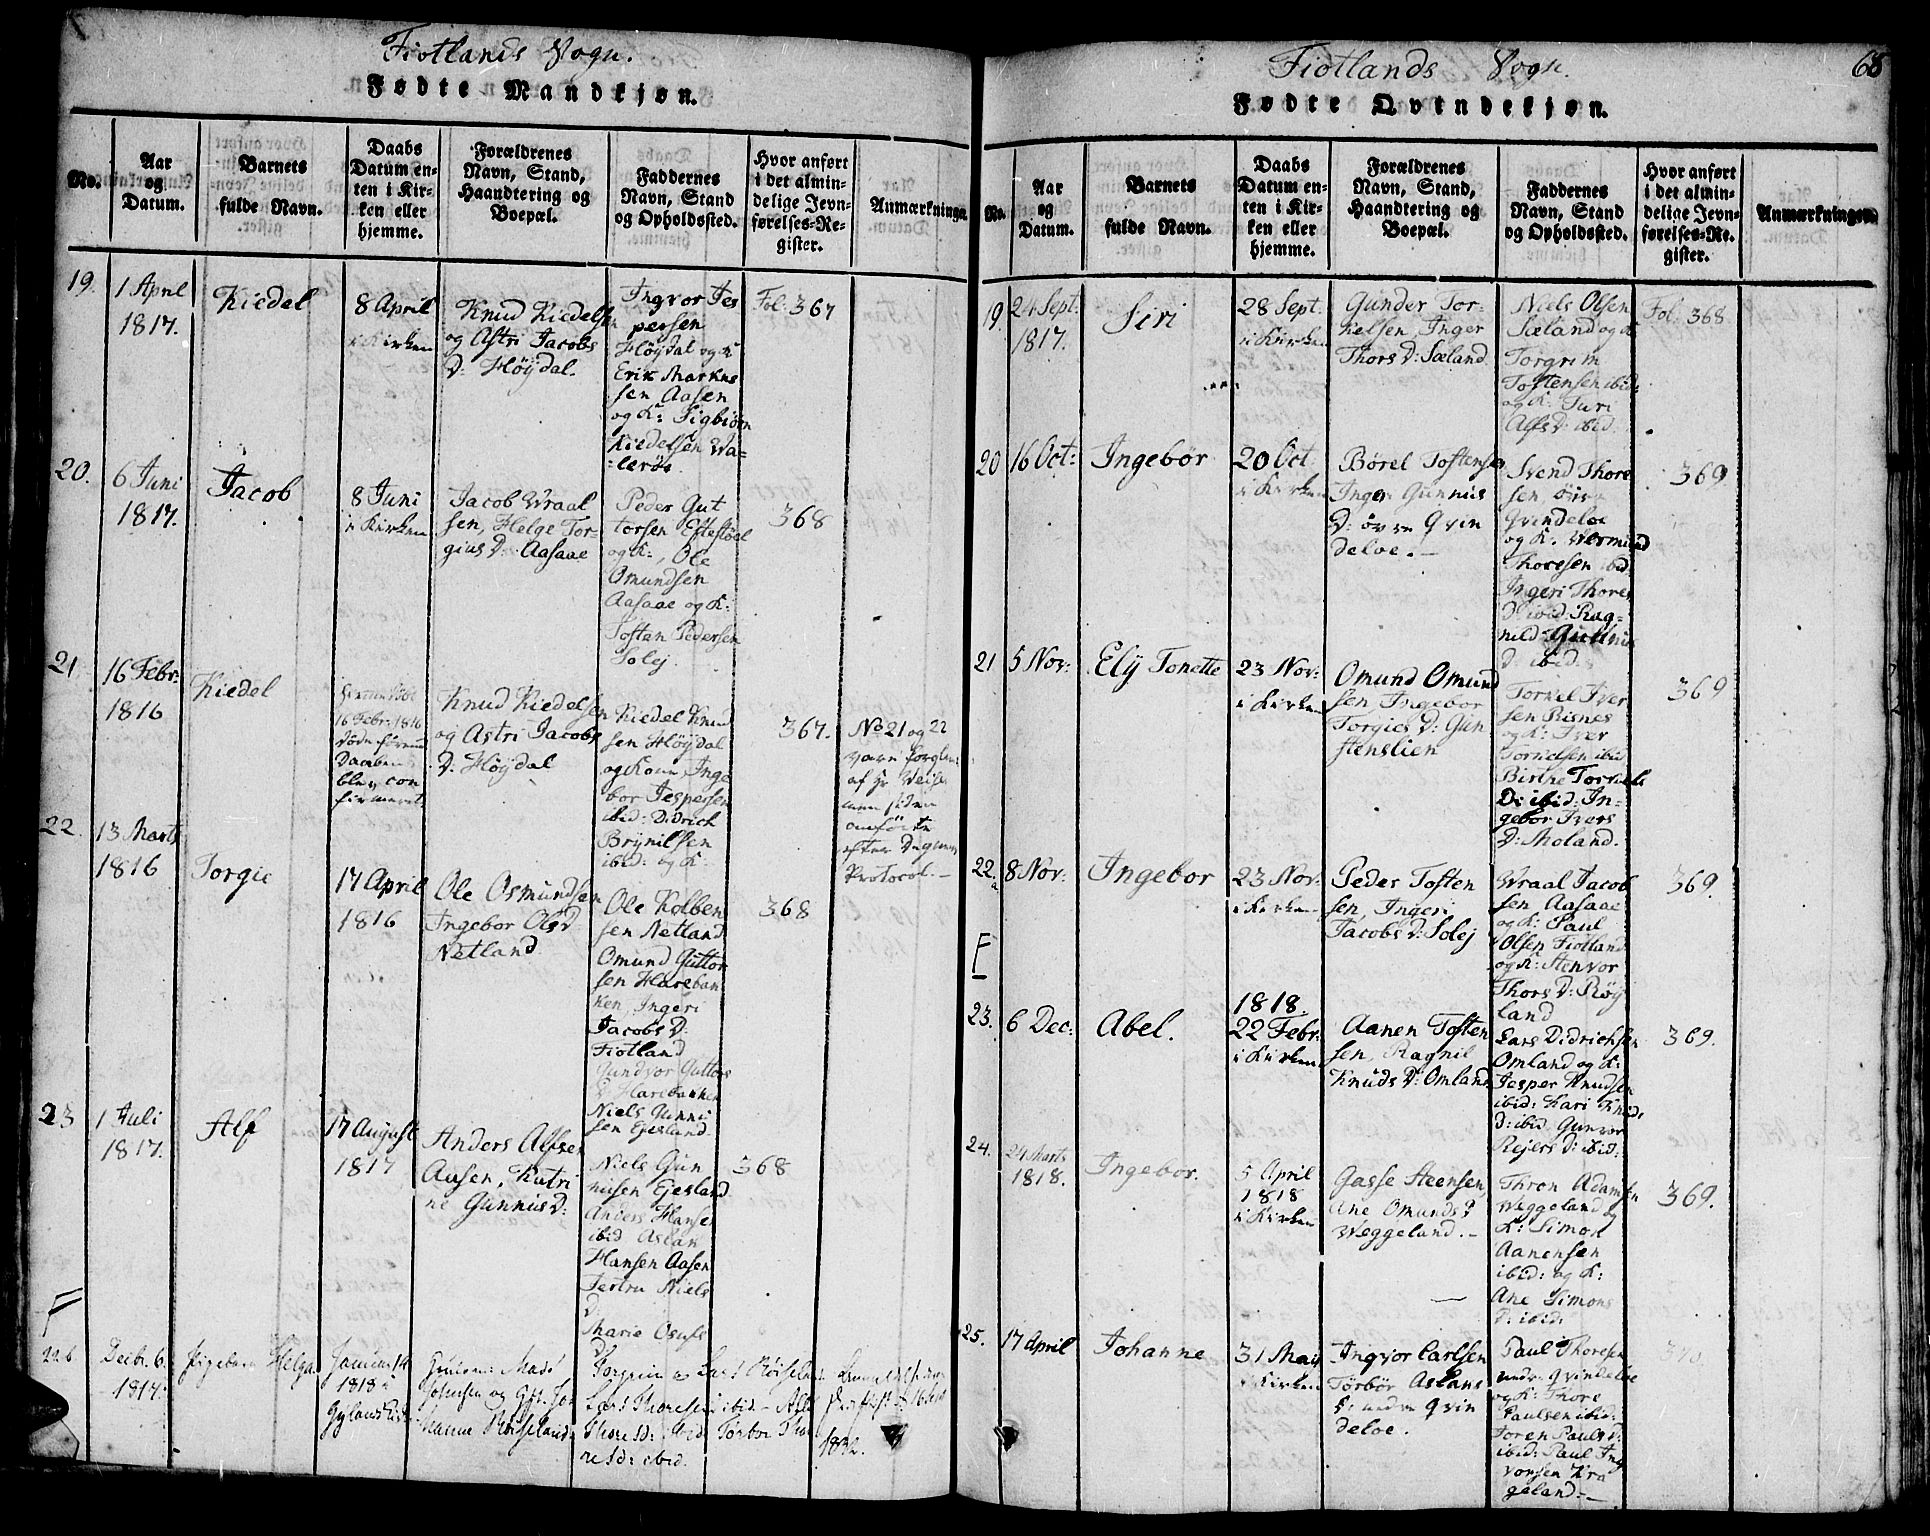 Fiotlands Sogn.
Fødte Mandkjøn.
No.
Aar
og
Datum.
Barnets
fulde Navn.
Daabs
Datum en-
ten i Kir-
ken eller
hjemme.
Forældrenes
Navn, Stand,
Haandtering og
Boepæl.
Faddernes
Navn, Stand
og Opholdssted.
Hvor anført
i det almin-
delige Jevn-
førelses-Re-
gister.
Anmærkninger.
19.
1 April
1817.
Kiedel
8 April
i Kirken
Knud Kiedelsen
og Astri Jacobs
D: Höÿdal.
Ingvor Jes
persen
Höÿdal og K
Erik Markus
sen Aasen
og K: Sigbiörn
Kiedelsen Wa-
Fol: 367
20.
6 Juni
1817.
Jacob
8 Juni
i Kirken
Jacob Wraal
sen, Helge Tor-
gius D: Aasaae
Peder Gut
torsen Eftestöel
og K:, Ole
Omundsen
Aasaae og K:
Tostan Pedersen
Solej.
368
21
16 Febr:
1816
Kiedel
16 Febr: 1816
Daaben
blev con
firmeret
Knud Kiedelsen
og Astri Jacobs
D: Höÿdal
Kiedel Knud
sen Höÿdal
og Kone, Inge
bor Jespersen
ibid: Didrich
Brÿnilsen
ibid: og K.
367.
No 21 og 22
efter Degnens
Protocol.-
22.
13 Marts
1816
Torgie
17 April
1816
Ole Osmundsen
Ingebor Ols D
Netland
Ole Kolben
sen Netland
Omund Guttor
sen Hareban
ken, Ingeri
Jacobs D:
Fiotland
Gundvor Guttors
D Harebanken
Niels Gunni
sen Ejesland
368
23
1 Juli
1817.
Alf
17 August
1817
Anders Alfsen
Aasen, Katri
ne Gunnius D:
Niels Gun
niisen Ejesland
Anders Hanse
ibid Aslan
Hansen Aasen
Niels
D:
Marie
368
F
22 b
Decbr. 6.
1817.
Helga
1818
Lars Thoresen ibid - 
1832.
Fiotlands Sogn.
68
Fødte Qvindekjøn.
No.
Aar
og
Datum.
Barnets
fulde Navn.
Daabs
Datum en-
ten i Kir-
ken eller
hjemme.
Forældrenes
Navn, Stand,
Haandtering og
Boepæl.
Faddernes
Navn, Stand
og Opholdssted.
Hvor anført
i det almin-
delige Jevn-
førelses-Re-
gister.
Anmærkninger.
19.
24 Sept:
1817.
Siri
28 Sept:
i Kirken
Gunder Tor-
kelsen, Inger
Thors D: Sæland
Niels Olsen
Sæland og K:
Torgrim
Tostensen ibid:
og K: Turi
Alfs D: ibid.
Fol: 368
20
16 Oct:
Ingebör
20 Oct
i Kirken
Börel Tostensen
Inger Gunnius
D: övre Qvin
deloe.-
Svend Thore
sen
Qvindeloe
og K. Wermund
Thoresen ibid:
Ingeri Thores
D: ibid: Rag-
nild Gunnius
D: ibid:
369
21
5 Nov:
Elÿ Tonette
23 Nov:
i Kirken
Omund Omund
sen Ingebor
Torgies D: Gun
stenslien
Torkel Iver
sen Risnes
og K: Iver
Torkelsen ibid
Birthe Torkels
D: ibid: In-
gebor Ivers
D: Moland.
369
22.
a
8 Nov:
Ingebor
23 Nov:
i Kirken
Peder Tosten
sen, Ingeri
Jacobs D: Solej
Wraal Jacob
sen Aasaae
og K: Paul
Olsen Fiotland
og K: Stenvor
Thors D: Röÿ
land
369.
F
23.
6 Dec:
Abel.
1818.
22 Febr:
i Kirken
Aanen Tosten
sen, Ragnil
Knuds D: Omland
Lars Didrichsen
Omland og K:
Jesper Knudsen
ibid: Kari Knuds
D: ibid Gunvor
Rejers D: ibid:
369.
24.
24 Marts
1818.
Ingebor.
5 April
1818
i Kirken
Gasse Steensen,
Ane Omunds D
Weggeland.-
Thron Adamsen
Weggeland og
K: Simon
Aanensen
ibid: og K:
Ane Simons
D: ibid:
369.
25.
17 April
Johanne
31 Maij
i Kirken
Ingvor Carlsen
Törbör Aslans
D: undre Qvin
deloe.
Paul Thoresen
undre Qvindeloe
og K: Thore
Paulsen ibid:
Toren Pauls D:
ibid: Paul Ing
vorsen Kra
geland:-
370